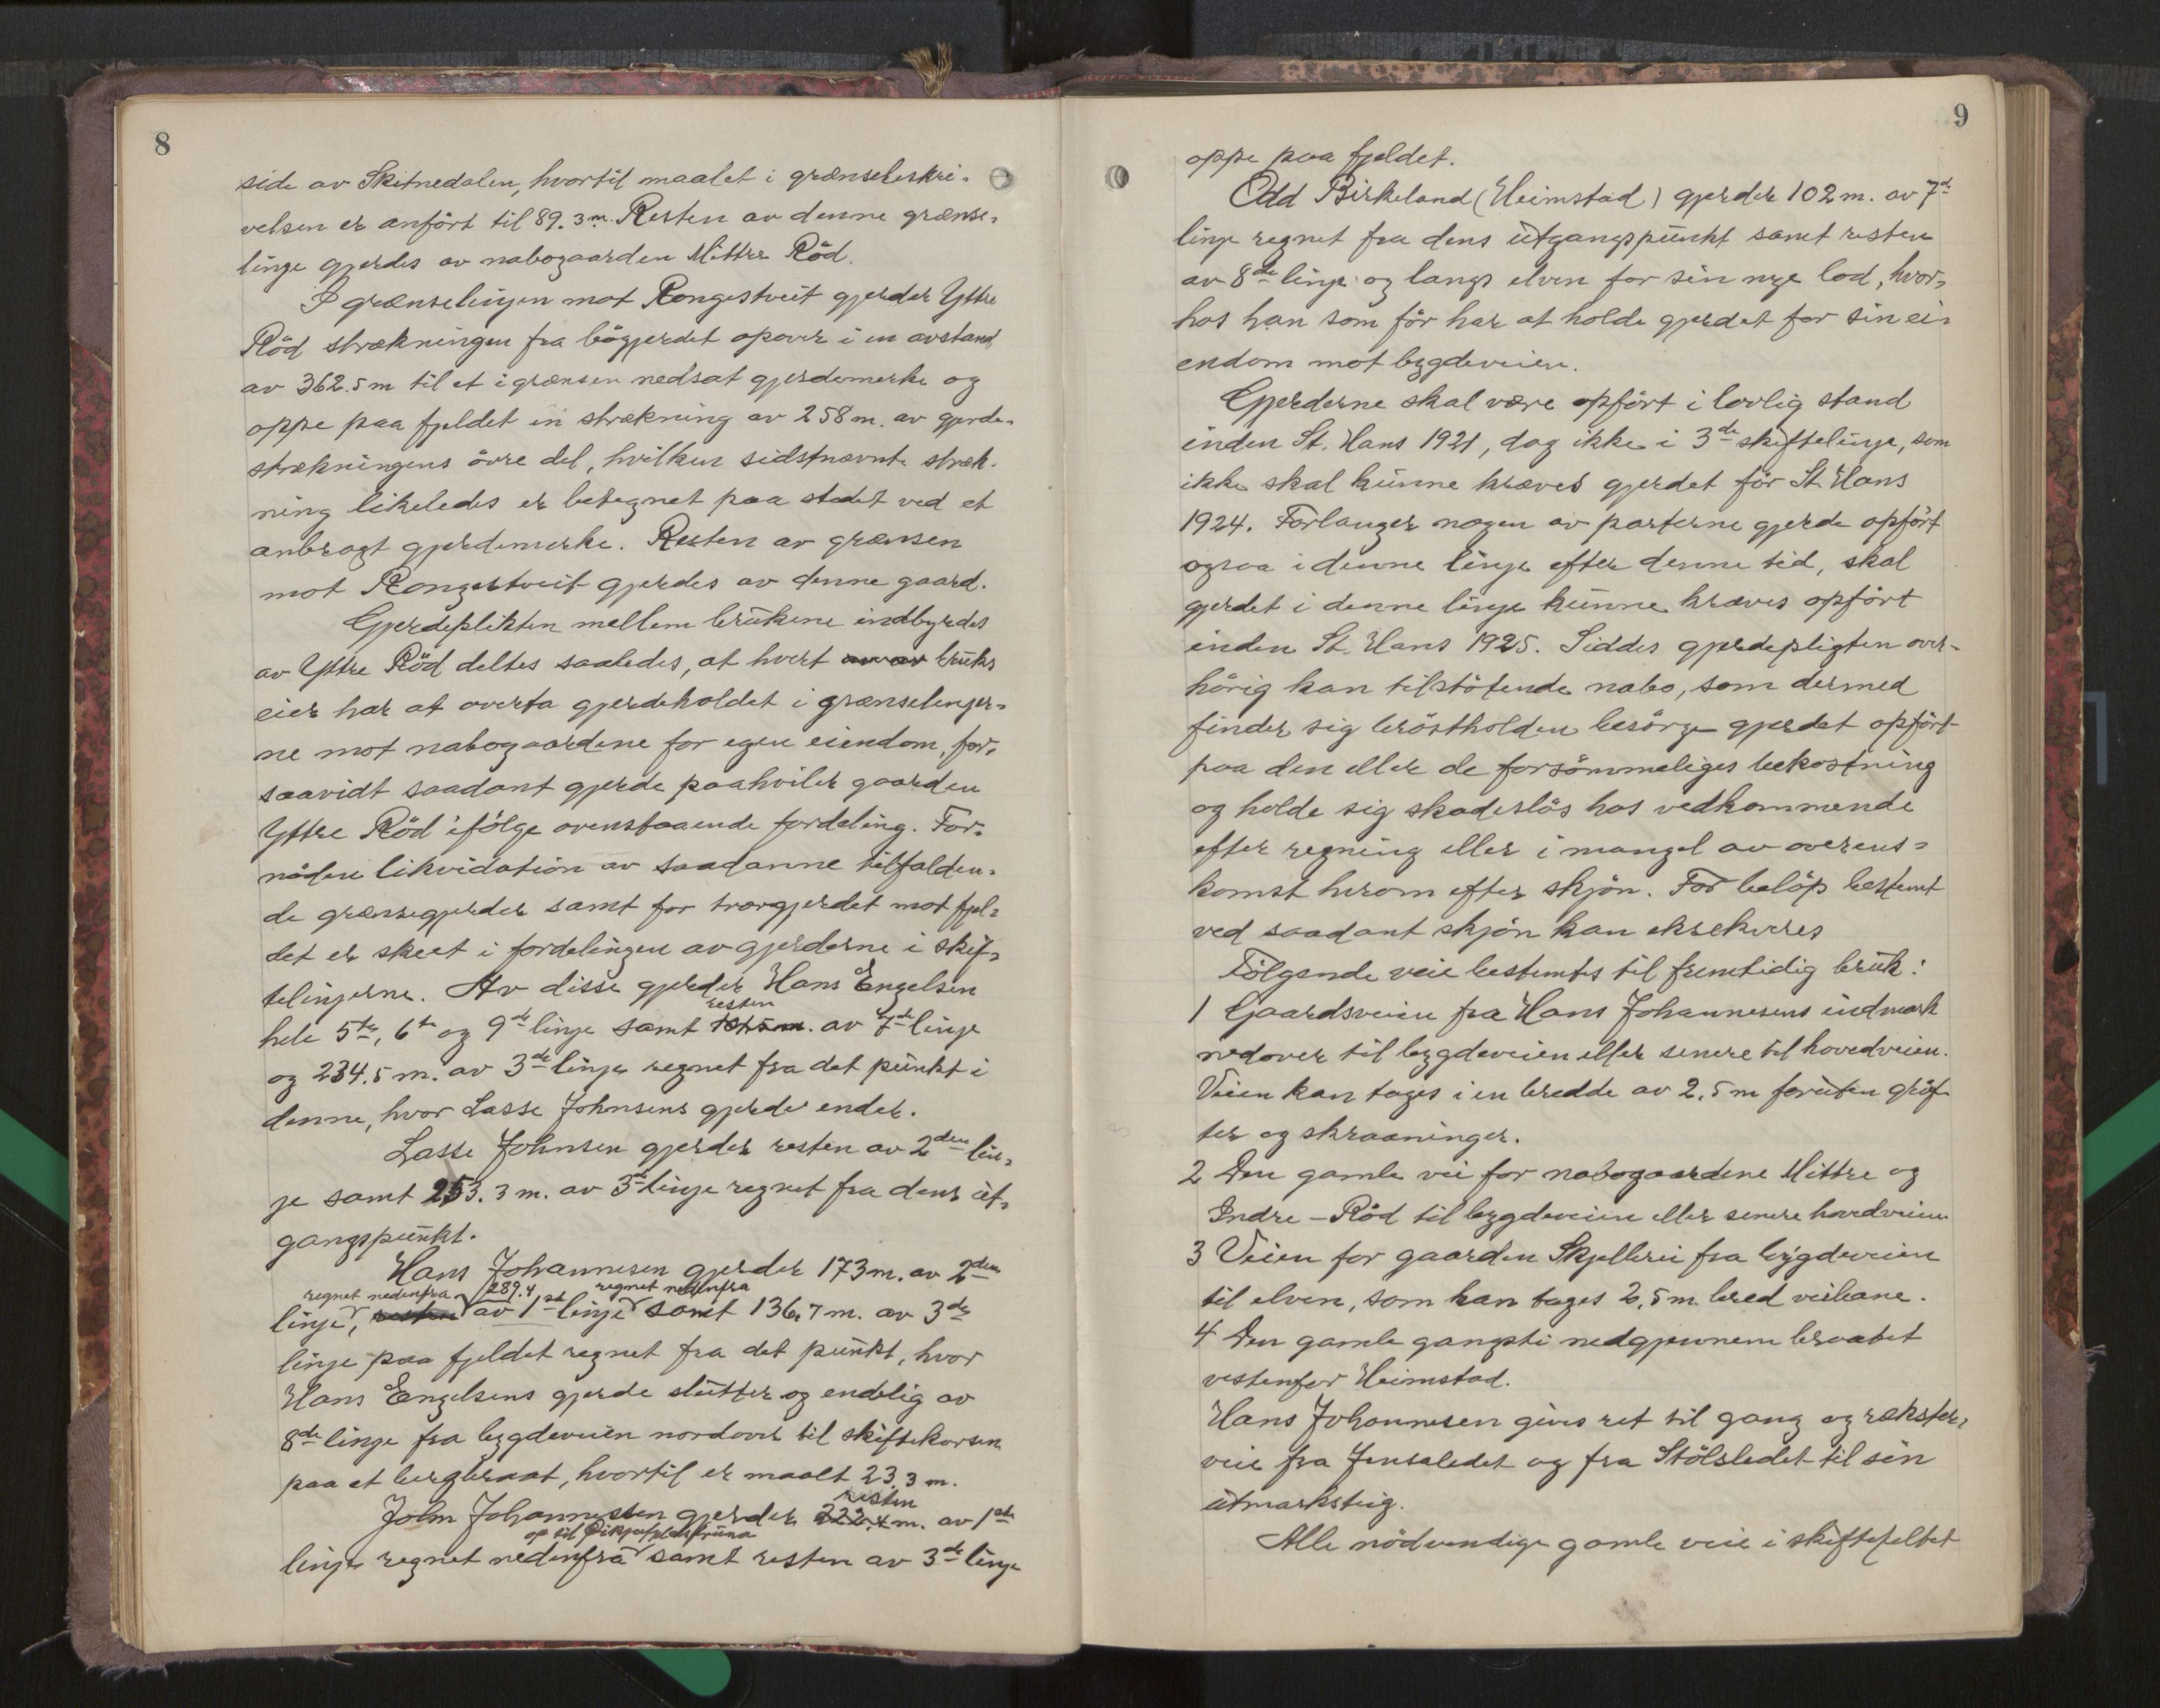 8
side av Skitnedalen, hvortil maalet i grænsebeskri-
velsen er anført til 89.3 m. Resten av denne grænse-
linje gjerdes av nabogaarden Mittre Röd.
I grænselinjen mot Rongestveit gjerder Yttre
Röd strækningen fra bögjerdet opover i en avstand
av 362.5 m til et i grænsen nedsat gjerdemerke og
oppe paa fjeldet en strækning av 258 m. av gjerde-
strækningens övre del, hvilken sidstnævnte stræk-
ning likeledes er betegnet paa stedet ved et
anbragt gjerdemerke. Resten av grænsen
mot Rongestveit gjerdes av denne gaard.
Gjerdeplikten mellem brükene indbyrdes
av Yttre Röd deltes saaledes, at hvert brüks
eier har at overta gjerdeholdet i grænselinjer-
ne mot nabogaardene for egen eiendom, for-
saavidt saadant gjerde paahviler gaarden
Yttre Röd ifölge ovenstaaende fordeling. For-
nöden likvidation av saadanne tilfalden-
de grænsegjerder samt for tværgjerdet mot fjel-
det er skeet i fordelingen av gjerderne i skif-
telinjerne. Av disse gjerder Hans Engelsen
resten
hele 5te, 6te og 9de linje samt av 7de linje
og 234.5 m. av 3de linje regnet fra det pünkt i
denne, hvor Lasse Johnsens gjerde ender.
Lasse Johnsen gjerder resten av 2den lin-
je samt 253.3 m. av 3de linje regnet fra dens üt-
gangspünkt.
Hans Johannesen gjerder 173 m. av 2den
regnet nedenfra 289.4 regnet nedenfra
linje, resten av 1ste linje samt 136,7 m. av 3de
linje paa fjeldet regnet fra det pünkt, hvor
Hans Engelsens gjerde slütter og endelig av
8de linje fra bygdeveien nordover til skiftekorsen
paa et bergbraat, hvortil er maalt 23.3 m.
resten
John Johannessen gjerder 222.4 m. av 1ste
op til
linje regnet nedenfra samt resten av 3de linje
9
oppe paa fjeldet.
Odd Birkeland (Heimstad) gjerder 102 m. av 7de
linje regnet fra dens ütgangspünkt samt resten
av 8de linje og langs elven for sin nye lod, hvor-
hos han som för har at holde gjerdet for sin ei-
endom mot bygdeveien.
Gjerderne skal være opfört i lovlig stand
inden St. Hans 1921, dog ikke i 3de skiftelinje, som
ikke skal künne kræves gjerdet för St. Hans
1924. Forlanger nogen av parterne gjerde opfört
ogsaa i denne linje efter denne tid, skal
gjerdet i denne linje künne kræves opfört
inden St. Hans 1925. Siddes gjerdepligten over-
hörig kan tilstötende nabo, som dermed
finder sig bröstholden besörge gjerdet opfört
paa den eller de forsömmeliges bekostning
og holde sig skadeslös hos vedkommende
efter regning eller i mangel av overens-
komst herom efter skjön. For belöp bestemt
ved saadant skjön kan eksekveres
Fölgende veie bestemtes til fremtidig brük:
1 Gaardsveien fra Hans Johannesens indmark
nedover til bygdeveien eller senere til hovedveien.
Veien kan tages i en bredde av 2,5 m forüten gröf-
ter og skraaninger.
2 Den gamle vei for nabogaardene Mittre og
Indre-Röd til bygdeveien eller senere hovedveien
3 Veien for gaarden Skjellerei fra bygdeveien
til elven, som kan tages 2,5 m. bred veibane.
4 Den gamle gangsti nedgjennem braatet
vestenfor Heimstad.
Hans Johannesen gives ret til gang og rækster-
veie fra Jensaledet og fra Stölsledet til sin
ütmarksteig.
Alle nödvendige gamle veie i skiftefeltet